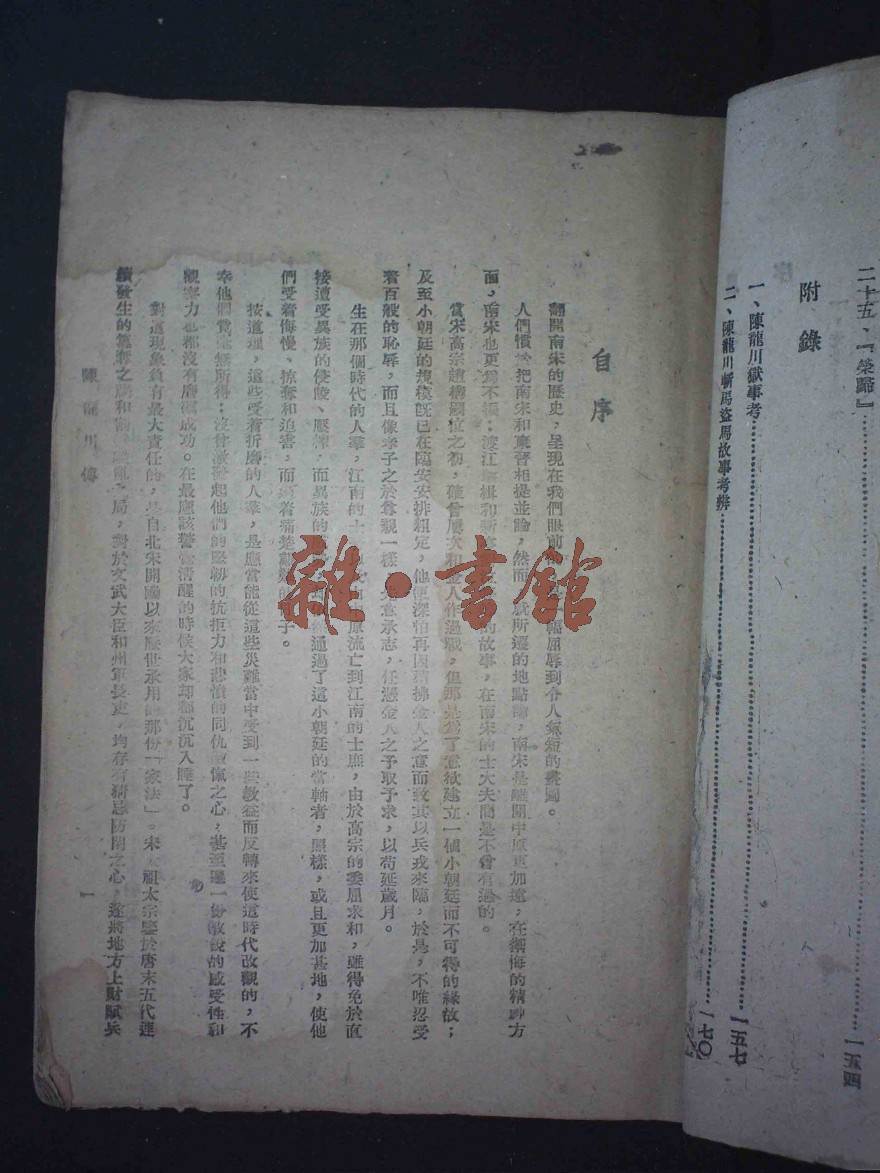 二十五、『榮歸』…………一五四
附錄
一、陳龍川獄事考…………一五七
二、陳龍川斬馬盜馬故事考辨…………一七〇
自序
翻開南宋的歷史，呈現在我們眼前的 幅屈辱到令人氣短的畫圖。
人們慣於把南宋和東晉相提並論，然而 就所遷的地點論，南宋是離開中原更加遠，在禦侮的精神方
面，南宋也更爲不振：渡江 楫和新亭 的故事，在南宋的士大夫間是不曾有過的。
當宋高宗趙構嗣位之初，確曾屢次和金人作過戰，但那是爲了意欲建立一個小朝廷而不可得的緣故；
及至小朝廷的規模旣已在臨安安排粗定，他便深怕再因稍拂金人之意而致其以兵戎來臨，於是，不唯忍受
着百般的恥辱，而且像孝子之於尊親一樣， 意承志，任憑金人之予取予求，以苟延歲月。
生在那個時代的人羣，江南的士 由中原流亡到江南的士庶，由於高宗的委屈求和，雖得免於直
接遭受異族的侵陵、壓榨，而異族的 通過了這小朝廷的當軸者，照樣，或且更加甚地，使他
們受着侮慢、掠奪和迫害，而 着痛楚艱難的 子。
按道理，這些受着折磨的人羣，是應當能從這些災難當中受到一些敎益而反轉來使這時代改觀的，不
幸他們竟毫無所得：沒曾激發起他們的堅韌的抗拒力和悲憤的同仇 愾之心，甚至連一份敏銳的感受性和
觀察力也都沒有磨 成功。在最應該警覺淸醒的時候大家却都沉沉入睡了。
對這現象負有最大責任的，是自北宋開國以來歷世承用的那份「家法」。宋太祖太宗鑒於唐末五代連
續發生的篡奪之 和 局，對於文武大臣和州軍長吏，均存有猜忌防閑之心，遂將地方上財賦兵
陳龍川傳
一
雜·書館